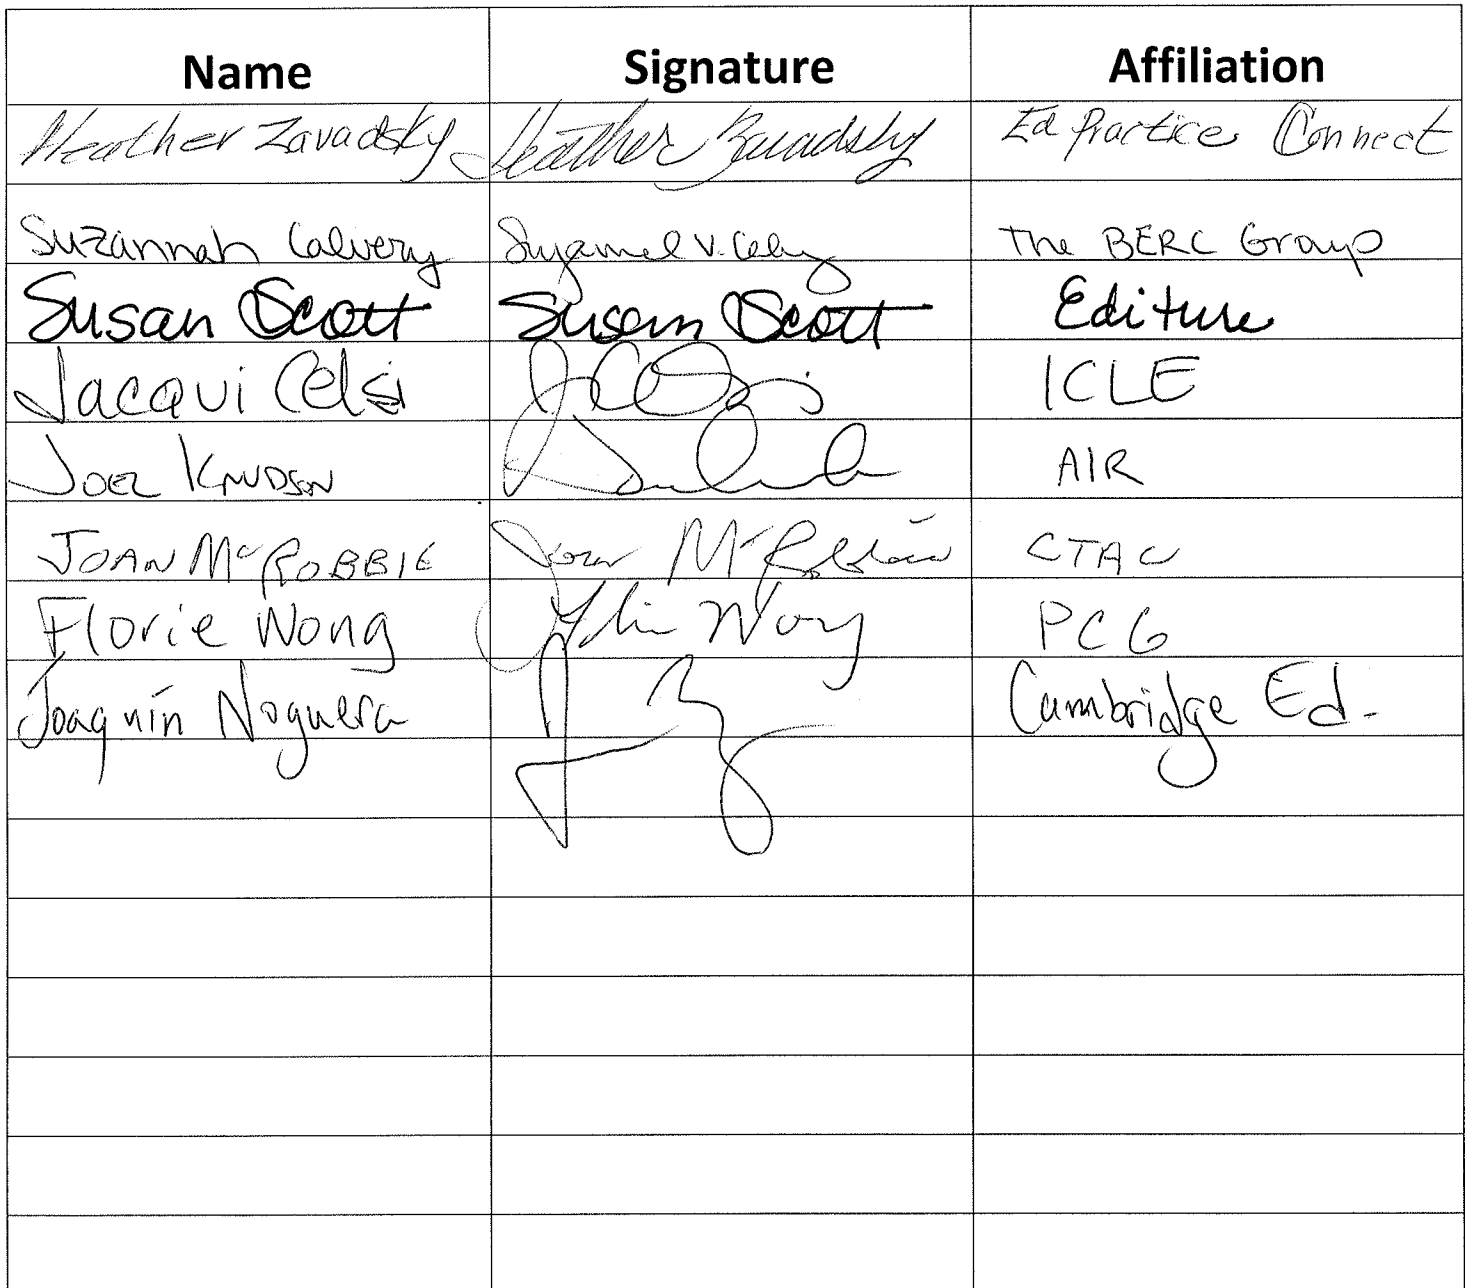 Name Signature Affiliation
Heather Zavadsky Heather Zavadsky Ed Practice Connect
Suzannah Calvery The BERC Group
Susan Scott Susan Scott Editure
Jacqui Celsi ICLE
Joel Knudson AIR
JOAN McROBBIE Joan McRobbie CTAC
Florie Wong Wong PCG
Joaquín Noguera Cambridge Ed.